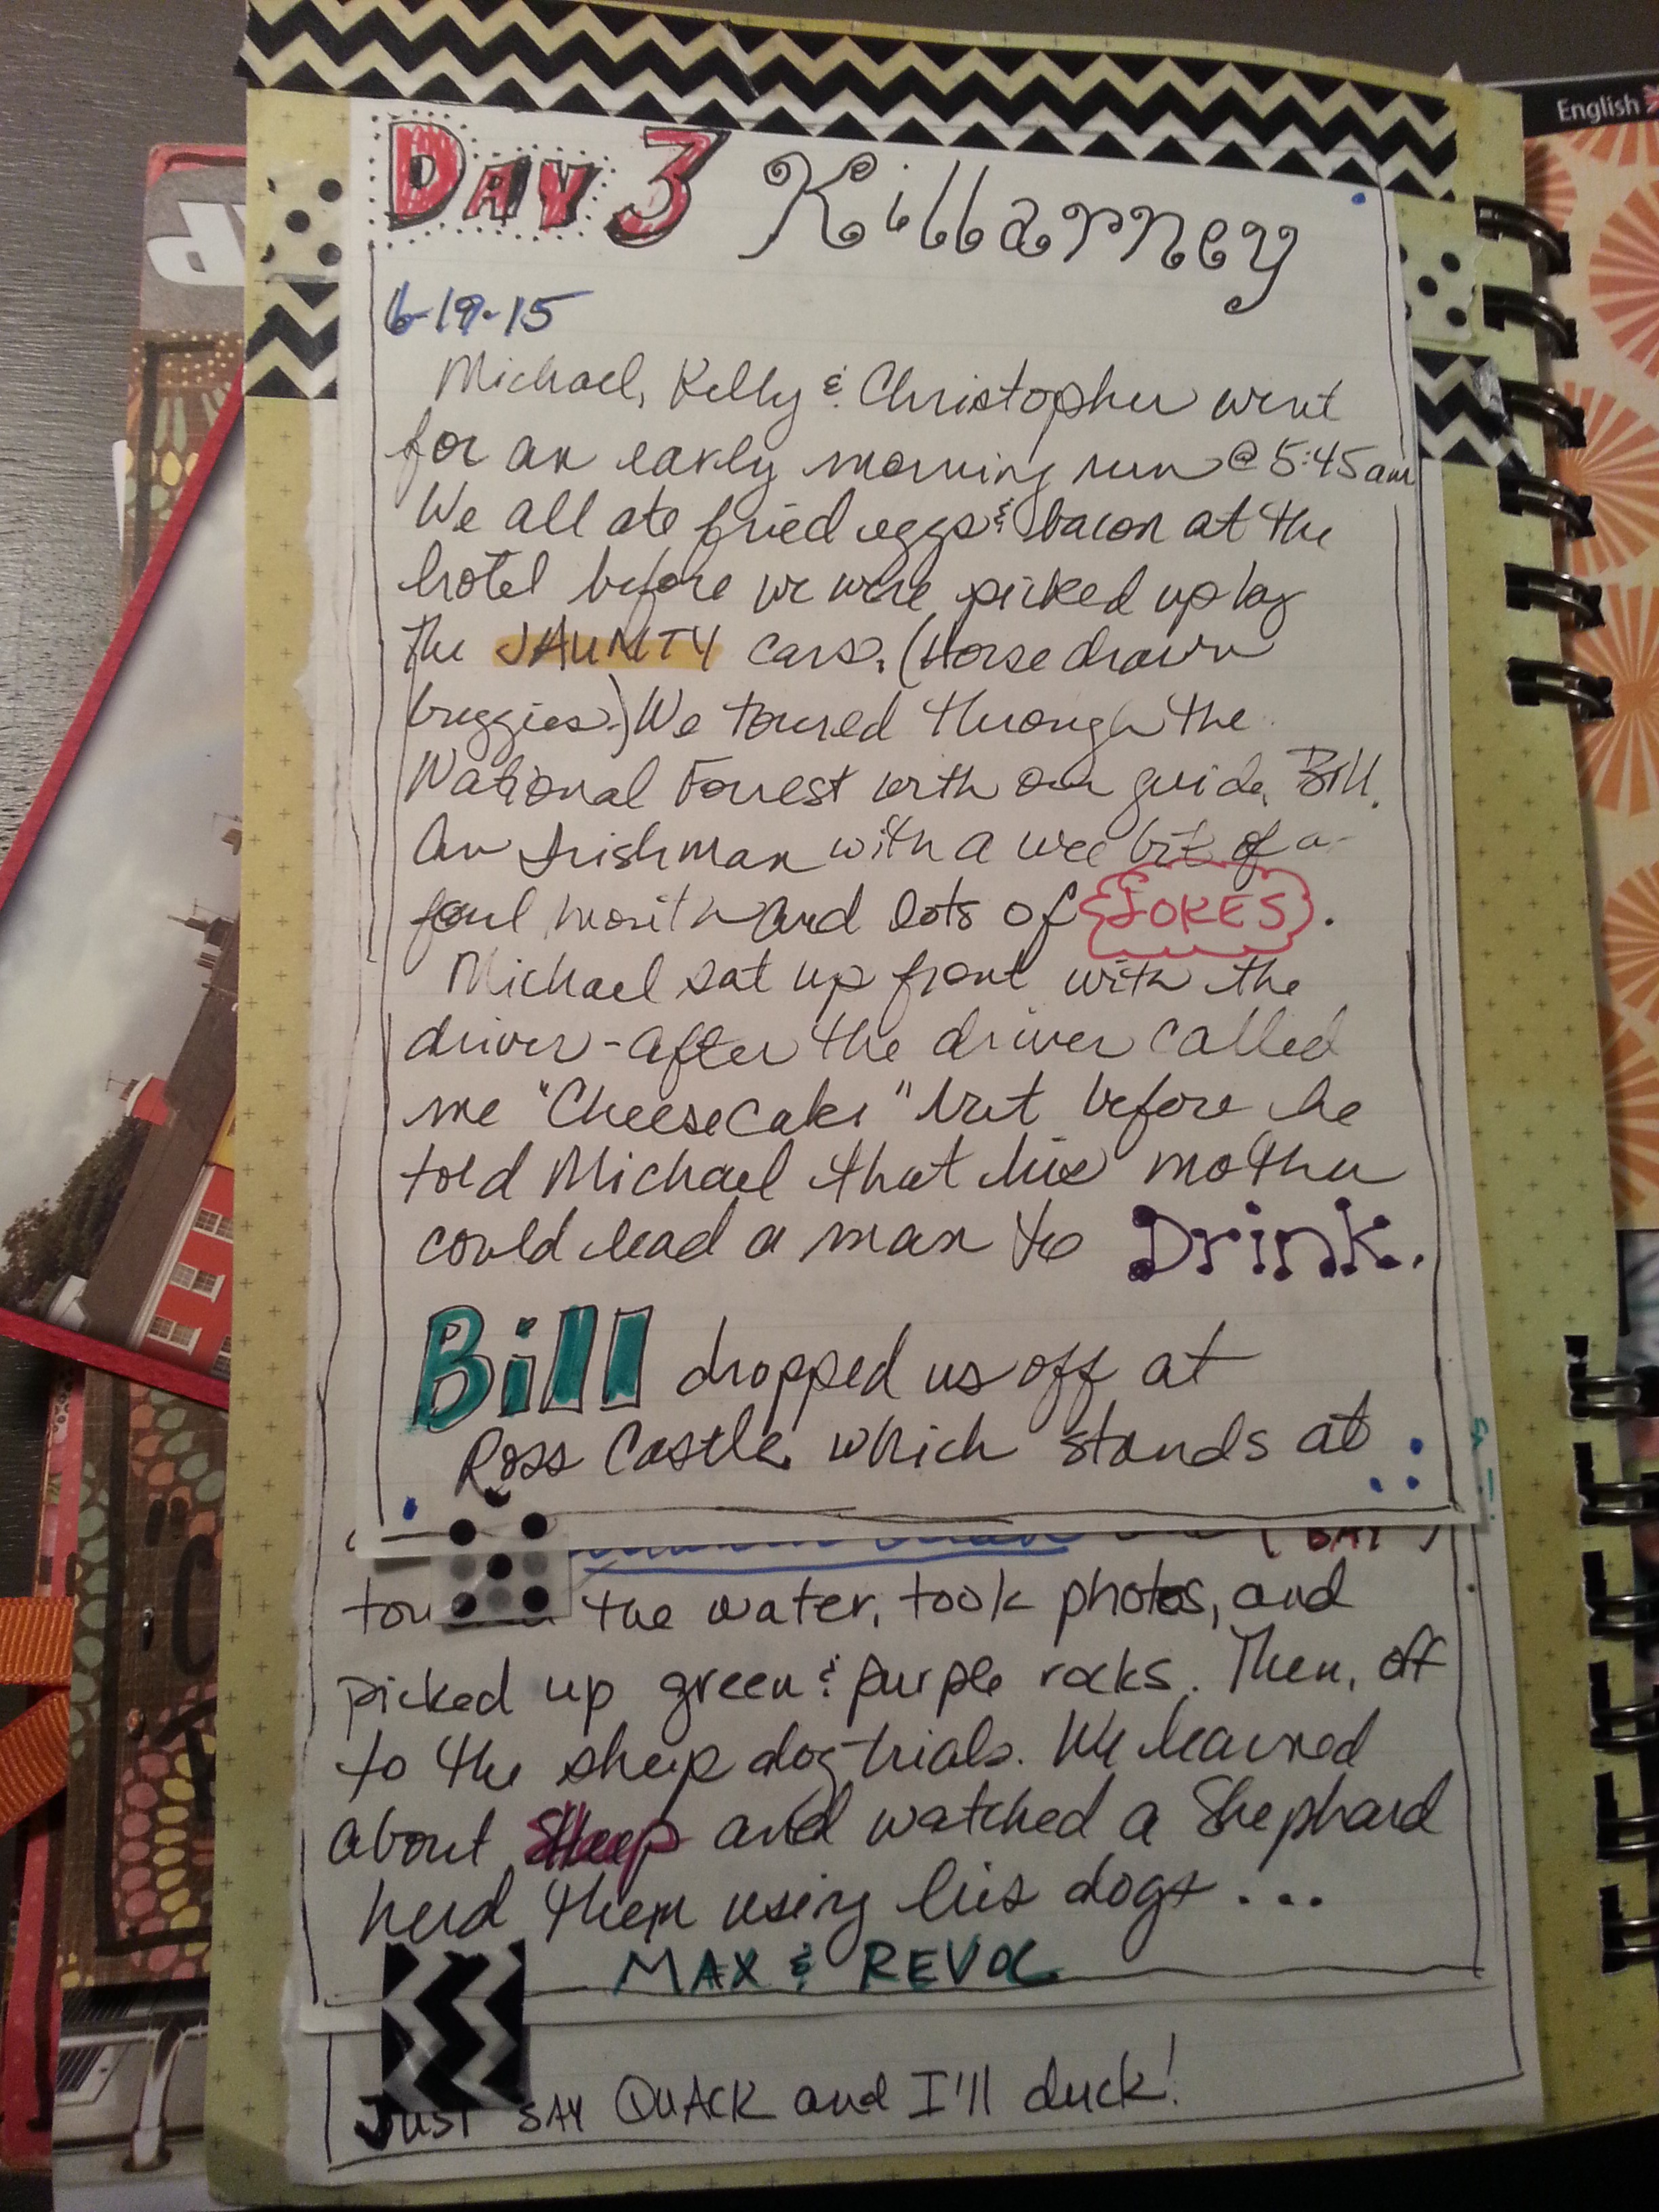 English
DAY 3 Killarney
6-19-15
Michael, Kelly & Christopher went
for an early morning run @ 5:45am
We all ate fried eggs & bacon at the
hotel before we were picked up by
the JAUNTY cars. (Horse drawn
buggies.) We toured through the
National Forrest with our guide, Bill.
An Irishman with a wee bit of a
foul mouth and lots of {JOKES}.
Michael sat up front with the
driver - after the driver called
me "Cheesecake" but before he
told Michael that his mother
could lead a man to Drink.
Bill dropped us off at
Ross Castle, which stands at
(BAY)
the water, took photos, and
picked up green & purple rocks. Then, off
to the sheep dog trials. We learned
about Sheep and watched a Shephard
herd them using his dogs...
MAX & REVOC
JUST SAY QUACK and I'll duck!